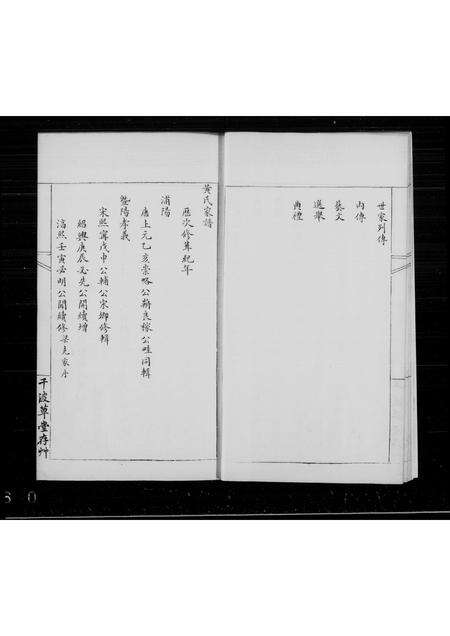 世家列傳
內傳
藝文
選舉
典禮
黃氏家譜
歷次修葺紀年
浦陽
唐上元乙亥崇略公鄰良稼公畦同輯
暨陽孝義
宋熙甯戊申公輔公宋卿修輯
紹興庚辰必先公開續增
淳熙壬寅必明公開續修
千波草堂存艸
80